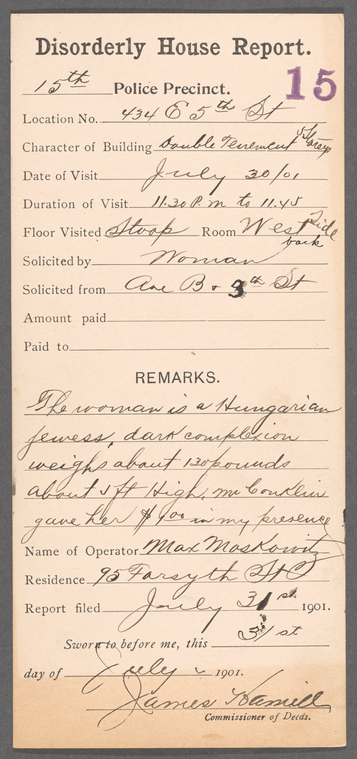 Disorderly House Report.
15th Police Precinct. 15
Location No. 434 E 5th St
Character of Building Double Tenement 5 Storey
Date of Visit July 30/01
Duration of Visit 11.30 P.m to 11.45
Floor Visited Stoop Room West Side back
Solicited by Woman
Solicited from Ave B & 3th St
Amount paid
Paid to
REMARKS.
The woman is a Hungarian
jewess, dark complexion
weighs about 130 pounds
about 5 ft High, Mr Conklin
gave her $1.00 in my presence
Name of Operator Max Moskowitz
Residence 95 Forsyth St
Report filed July 31st 1901.
Sworn to before me, this 31st
day of July 1901.
James Hamill
Commissioner of Deeds.